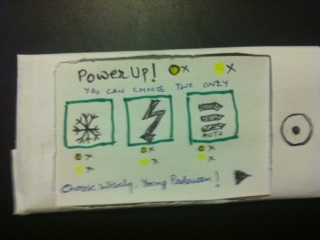 Power Up! x x
YOU CAN CHOOSE TWO ONLY
AUTO
x x x
x x x
Choose Wisely, Young Padawan!